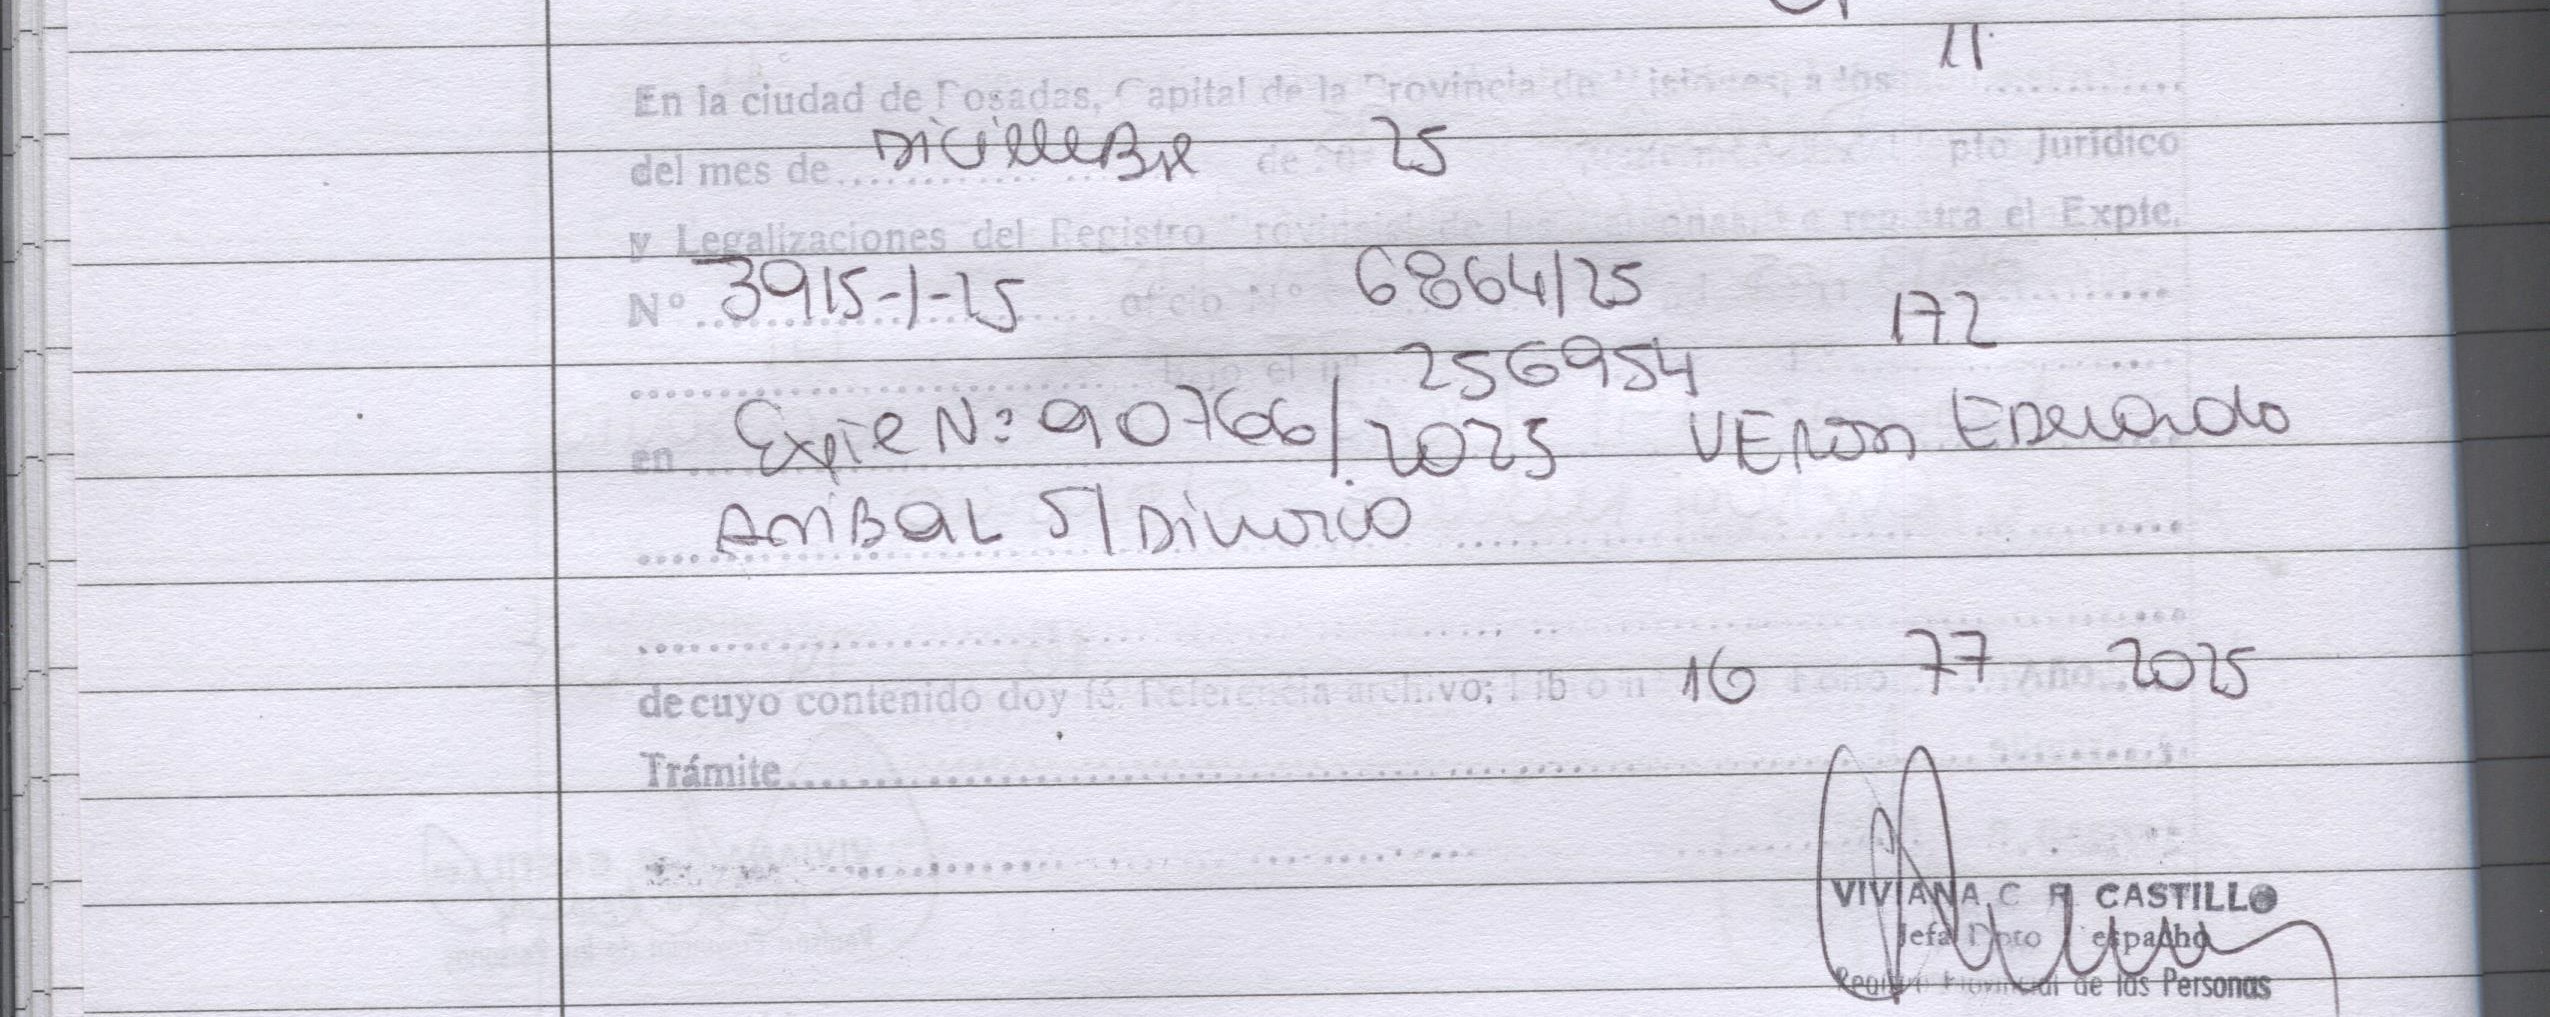 11
En la ciudad de Posadas, Capital de la Provincia de Misiones, a los
del mes de DiCiembre de 20 25 pto Jurídico
y Legalizaciones del Registro Provincial de las Personas, se registra el Expte.
Nº 3915-1-25 oficio Nº 6864/25 172
bajo el nº 256954
en Expte Nº: 90766/2025 VERON EDuardo
AniBaL S/ Divorcio
de cuyo contenido doy fé. Referencia archivo; Libro nº 16 Folio 77 Año 2025
Trámite
VIVIANA C R CASTILLO
Jefa Dpto Despacho
Registro Provincial de las Personas